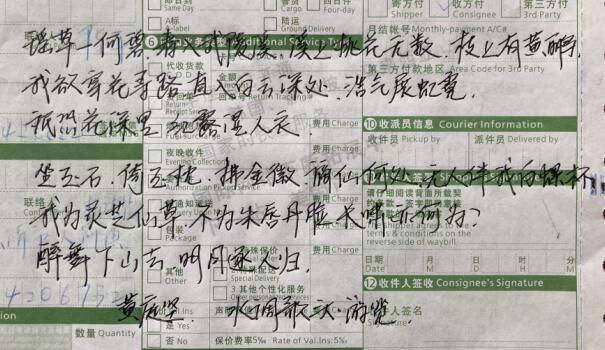 即日到 Same Day
次日到
四日件 Four-day
寄方付 Shipper
收方付 Consignee
第三方付 3rd Party
A标 A-label
B标
陆运 Ground
Cargo Delivery
月结帐号 Monthly-payment A/C#
瑶草一何碧,春入武陵溪,溪上桃花无数,枝上有黄鹂,
Additional Service Type
代收货款
金额
第三方付款地区 Area Code for 3rd Party
我欲穿花寻路 直入白云深处,浩气展虹霓.
Return Tracking
祗恐花深里 红露湿人衣
费用 Charge
⑩ 收派员信息 Courier Information
收件员 Pickup by
派件员 Delivered by
夜晚收件 Evening Collection
费用 Charge
坐玉石,倚玉枕,拂金徽.谪仙何处 无人伴我白螺杯
联络人
请仔细阅读背面所载契
我为灵芝仙草,不为朱唇丹脸 长啸亦何为?
包装 Package
terms & conditions on the reverse side of waybill.
醉舞下山去 明月逐人归.
其他 Other
特殊配送 Special Delivery
3.其他个性化服务
费用 Charge
日期 Date
月 M
日 D
时 H
分 M
⑫ 收件人签收 Consignee's Signature
黄庭坚 水调歌头·游览.
签名 Signature
数量 Quantity
是 Yes
否 No
保价费率5‰ Rate of Val.Ins:5‰